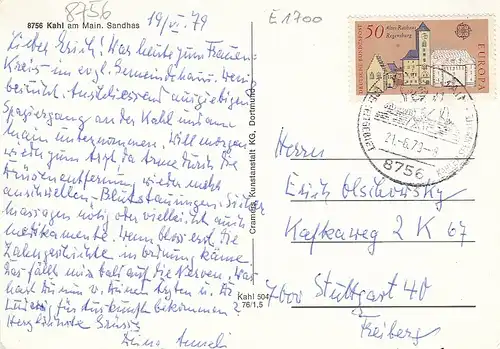 8756
8756 Kahl am Main. Sandhas
19/VI. 79
E 1700
Lieber Erich! War heute zum Frauen-
Kreis im evgl. Gemeindehaus.
Anschliessend ausgiebigen
Spaziergang an der Kahl und am
Main unternommen. Will morgen
wieder zum Arzt da Arme durch die
Drüsenentfernung wieder mehr
anschwellen, Blutstauungen. Sicher
Massagen nötig oder vielleicht auch
Medikamente. Wenn bloss erst die
Zahngeschichte in Ordnung käme.
Das fällt mir bald auf die Nerven. Was
hast Du nun v. Deinen Ärzten u. Dr.
für Auskunft bekommen?
Herzlichste Grüsse
Deine
Cramers Kunstanstalt KG, Dortmund
Kahl 504
76/1,5
DEUTSCHE BUNDESPOST
50
Altes Rathaus
Regensburg
EUROPA
CEPT
21.-6.79.-8
8756
Herrn
Erich Olschowsky
Kafkaweg 2 K 67
7000 Stuttgart 40
Freiberg